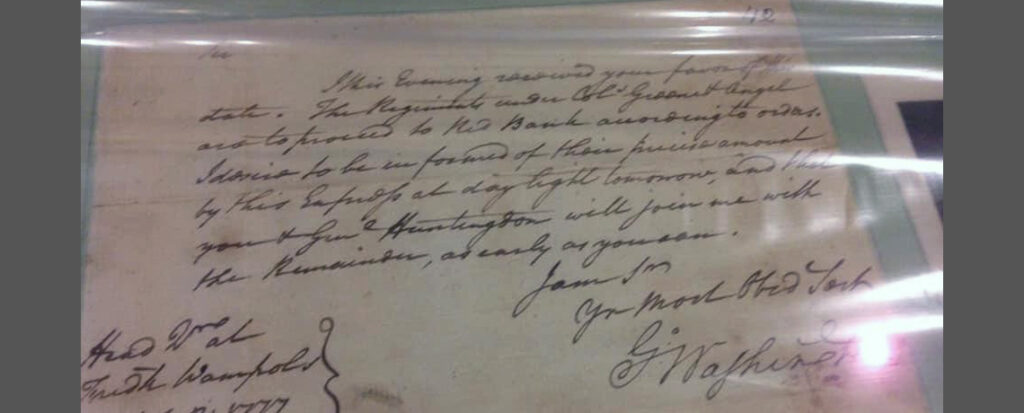 42
Sir
I this Evening received your favor of this
date. The Regiments under Cols. Greene & Angel
are to proceed to Red Bank according to orders.
I desire to be informed of their precise amount
by this Express at day light tomorrow, and that
you & Genl. Huntingdon will join me with
the Remainder, as early as you can.
I am Sir
Yr Most Obed Servt
Go Washington
Head Qrs at
Fredk Wampols
1777